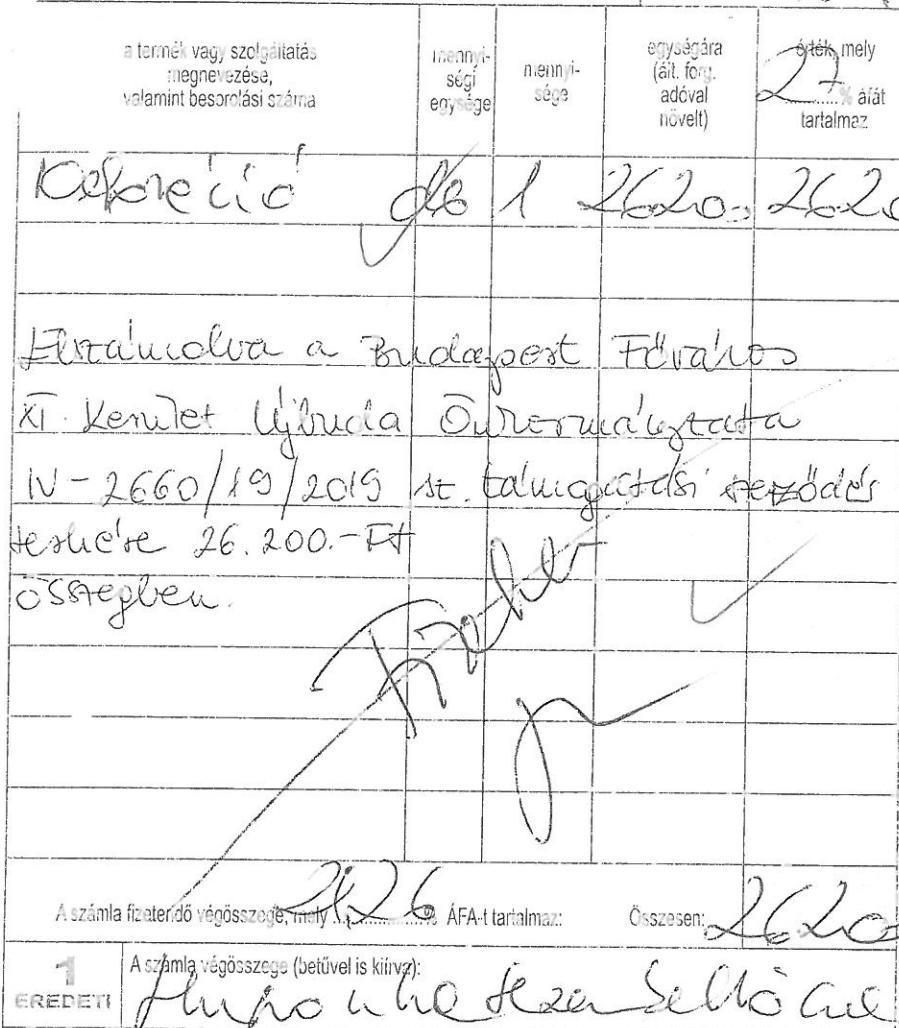 a termék vagy szolgáltatás megnevezése, valamint besorolási száma
mennyi-ségi egysége
mennyi-sége
egységára (ált. forg. adóval növelt)
érték, mely 27 % áfát tartalmaz
Dekoráció db 1 2620 2620
Elszámolva a Budapest Főváros
XI. Kerület Újbuda Önkormányzata
IV-2660/19/2019 sz. támogatási szerződés
terhére 26.200.-Ft
összegben.
A számla fizetendő végösszege, mely % ÁFA-t tartalmaz: Összesen: 2620
1 EREDETI
A számla végösszege (betűvel is kiírva):